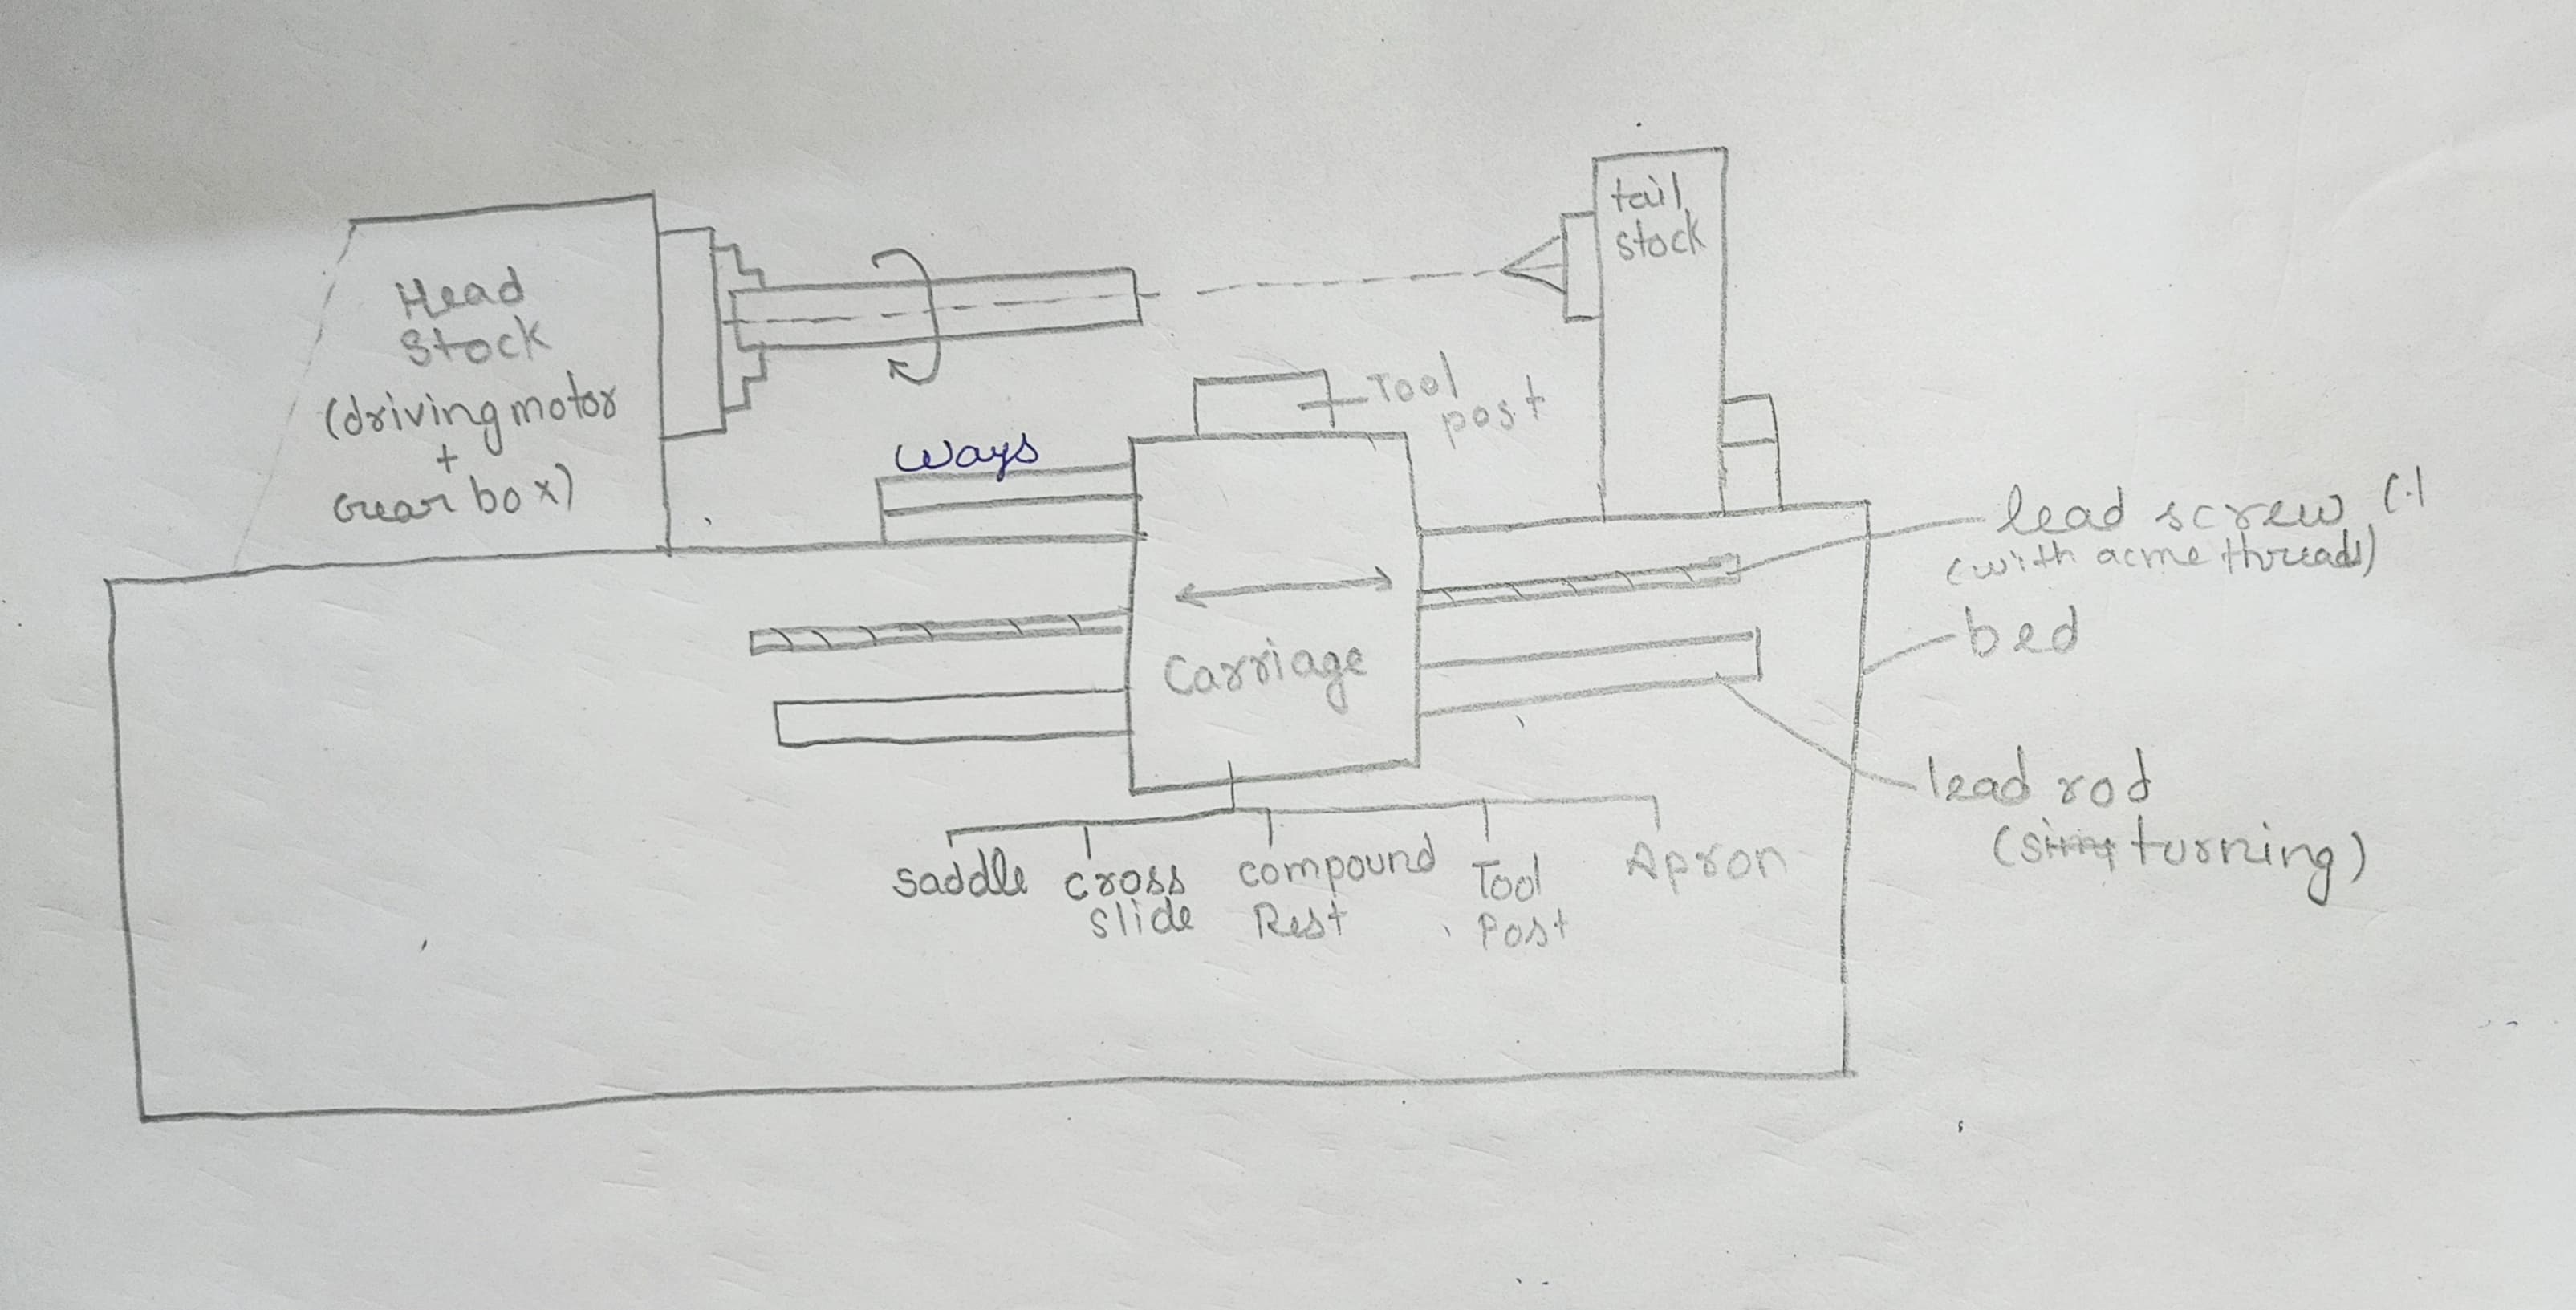 Head
Stock
(driving motor
+
Gear box)
tail
stock
Tool
post
ways
lead screw
(with acme threads)
bed
Carriage
lead rod
(turning)
saddle
cross
slide
compound
Rest
Tool
Post
Apron